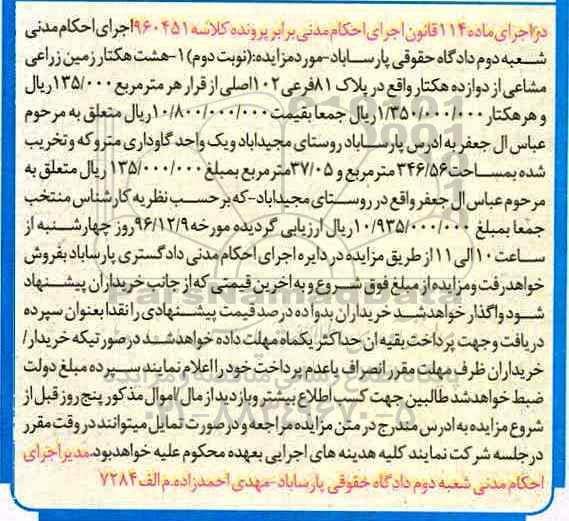 دراجرای ماده ۱۱۴ قانون اجرای احکام مدنی برابر پرونده کلاسه ۹۶۰۴۵۱ اجرای احکام مدنی
شعبه دوم دادگاه حقوقی پارساباد-مورد مزایده:(نوبت دوم) ۱-هشت هکتار زمین زراعی
مشاعی از دوازده هکتار واقع در پلاک ۸۱ فرعی ۱۰۲ اصلی از قرار هر مترمربع ۱۳۵/۰۰۰ ریال
و هر هکتار ۱/۳۵۰/۰۰۰/۰۰۰ ریال جمعا بقیمت ۱۰/۸۰۰/۰۰۰/۰۰۰ ریال متعلق به مرحوم
عباس ال جعفر به ادرس پارساباد روستای مجیداباد و یک واحد گاوداری متروکه و تخریب
شده بمساحت ۳۴۶/۵۶ مترمربع و ۳۷/۰۵ متر مربع بمبلغ ۱۳۵/۰۰۰/۰۰۰ ریال متعلق به
مرحوم عباس ال جعفر واقع در روستای مجیداباد-که بر حسب نظریه کارشناس منتخب
جمعا بمبلغ ۱۰/۹۳۵/۰۰۰/۰۰۰ ریال ارزیابی گردیده مورخه ۹۶/۱۲/۹ روز چهارشنبه از
ساعت ۱۰ الی ۱۱ از طریق مزایده در دایره اجرای احکام مدنی دادگستری پارساباد بفروش
خواهد رفت و مزایده از مبلغ فوق شروع و به اخرین قیمتی که از جانب خریداران پیشنهاد
شود واگذار خواهد شد خریداران بدوا ده درصد قیمت پیشنهادی را نقدا بعنوان سپرده
دریافت و جهت پرداخت بقیه ان حداکثر یکماه مهلت داده خواهد شد در صورتیکه خریدار/
خریداران ظرف مهلت مقرر انصراف یا عدم پرداخت خود را اعلام نمایند سپرده مبلغ دولت
ضبط خواهد شد طالبین جهت کسب اطلاع بیشتر و بازدید از مال/اموال مذکور پنج روز قبل از
شروع مزایده به ادرس مندرج در متن مزایده مراجعه و در صورت تمایل میتوانند در وقت مقرر
در جلسه شرکت نمایند کلیه هدینه های اجرایی بعهده محکوم علیه خواهد بود. مدیر اجرای
احکام مدنی شعبه دوم دادگاه حقوقی پارساباد-مهدی احمدزاده.م الف ۷۲۸۴
ParsNamadData
۰۲۱-۸۸۳۴۹۶۷۰-۵